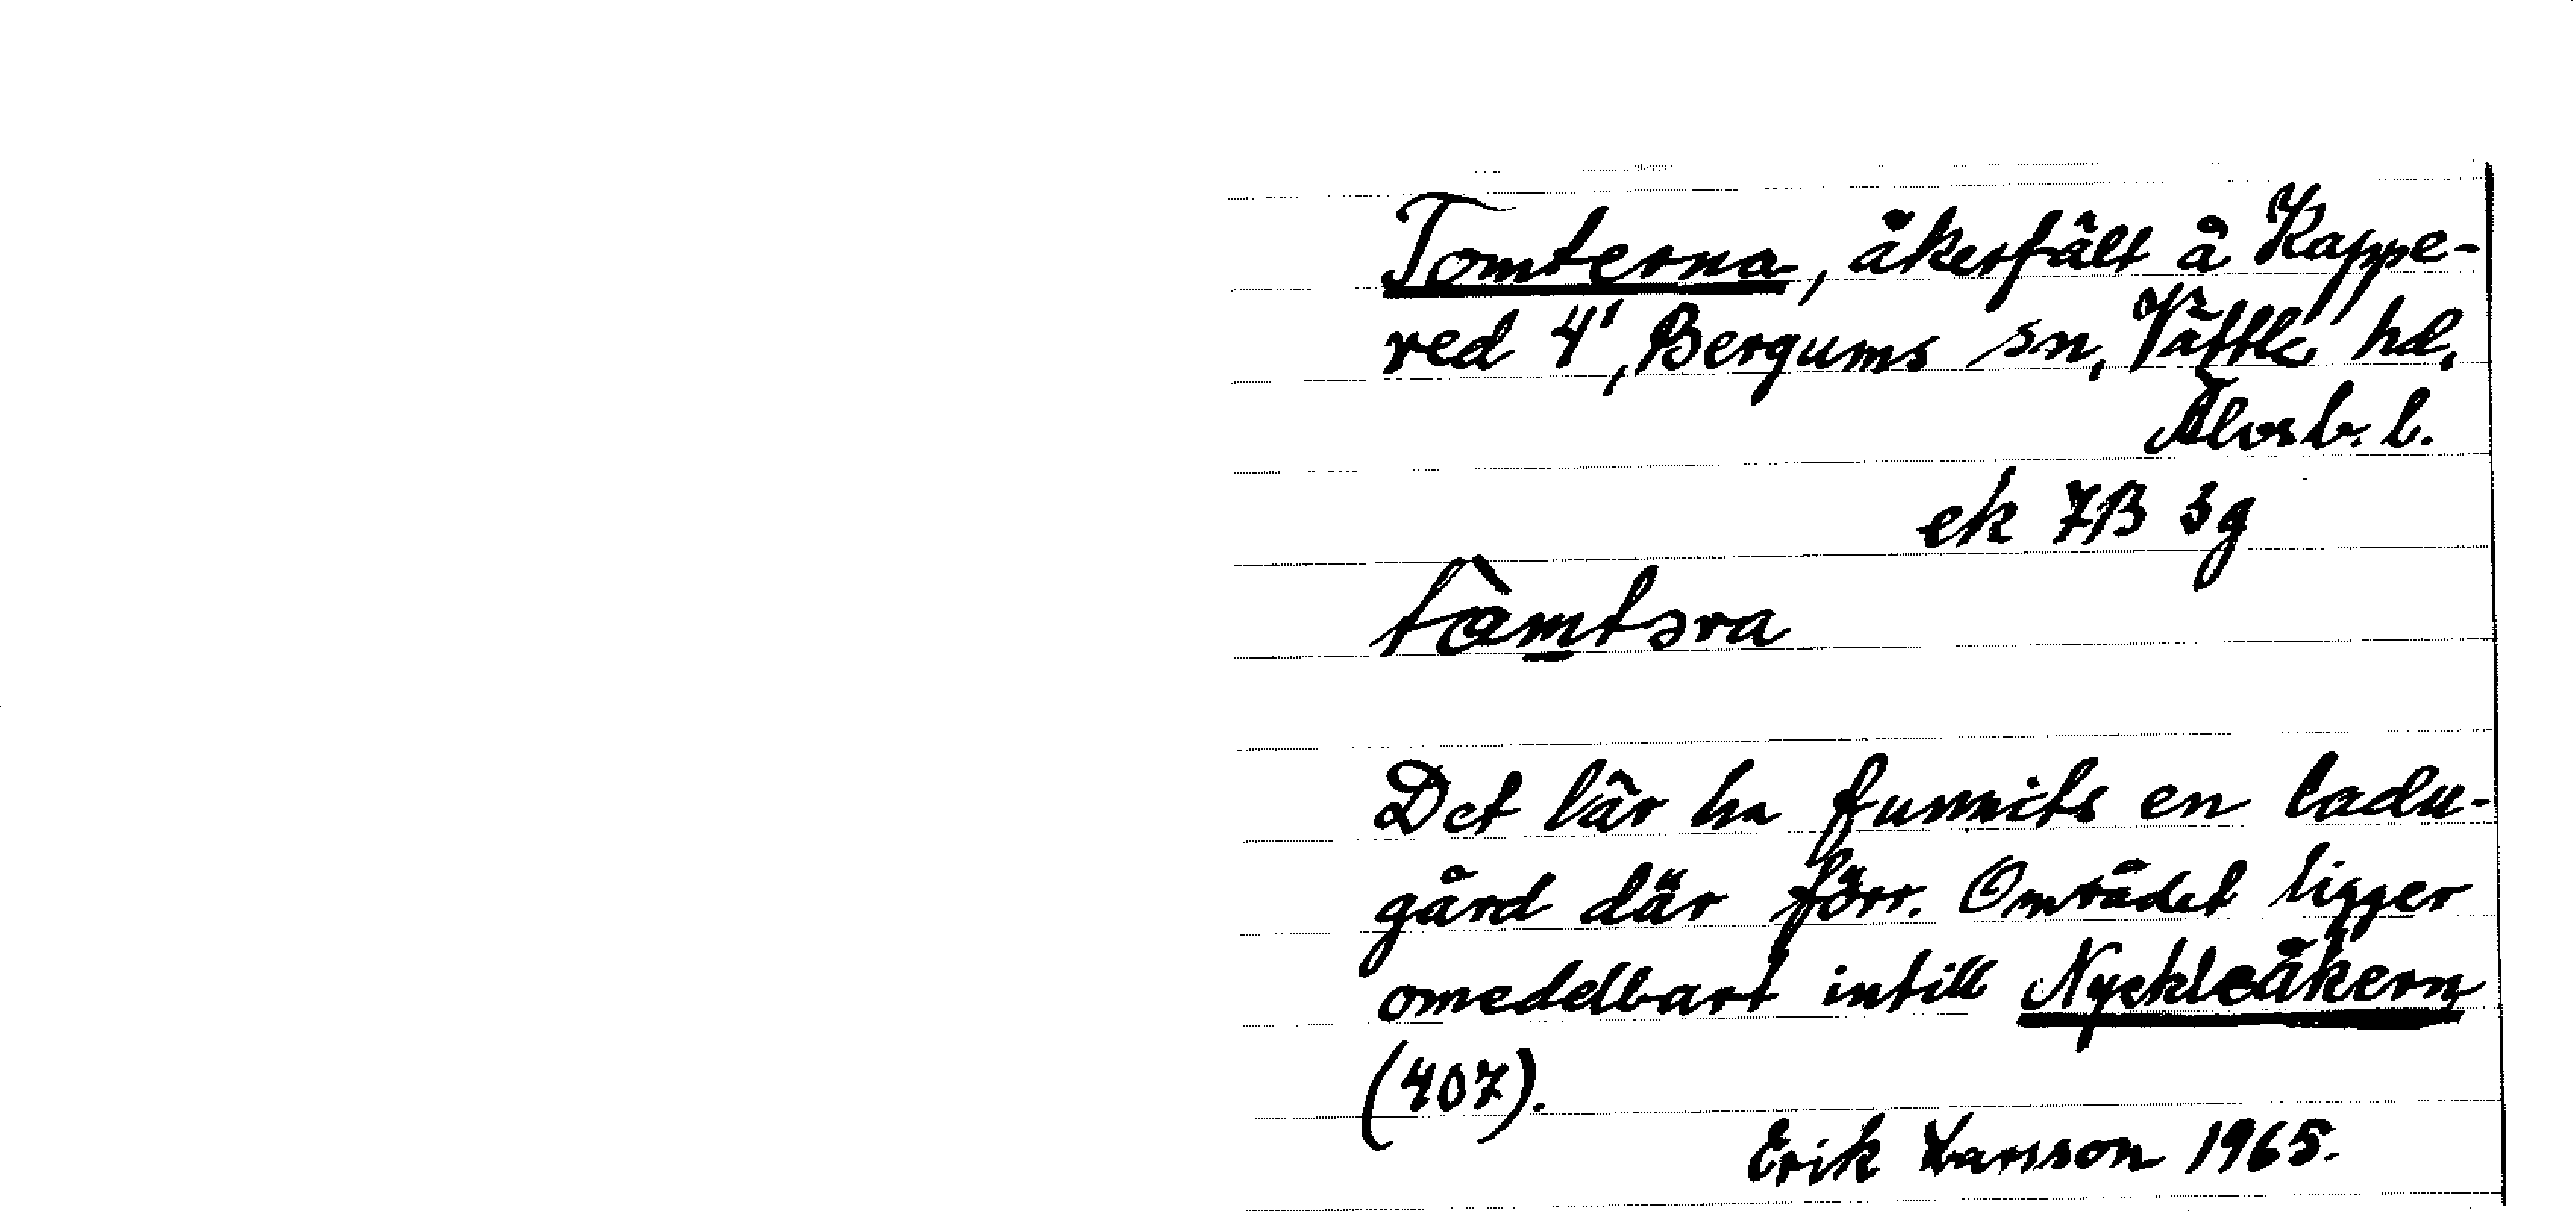 Tomterna, åkerfält å Kappe-
red 4¹, Bergums sn, Vättle hd,
Älvsb. l.
ek 7B 3g
tòmtəra
Det lär ha funnits en ladu-
gård där förr. Området ligger
omedelbart intill Nyckleåkern
(407).
Erik Larsson 1965.